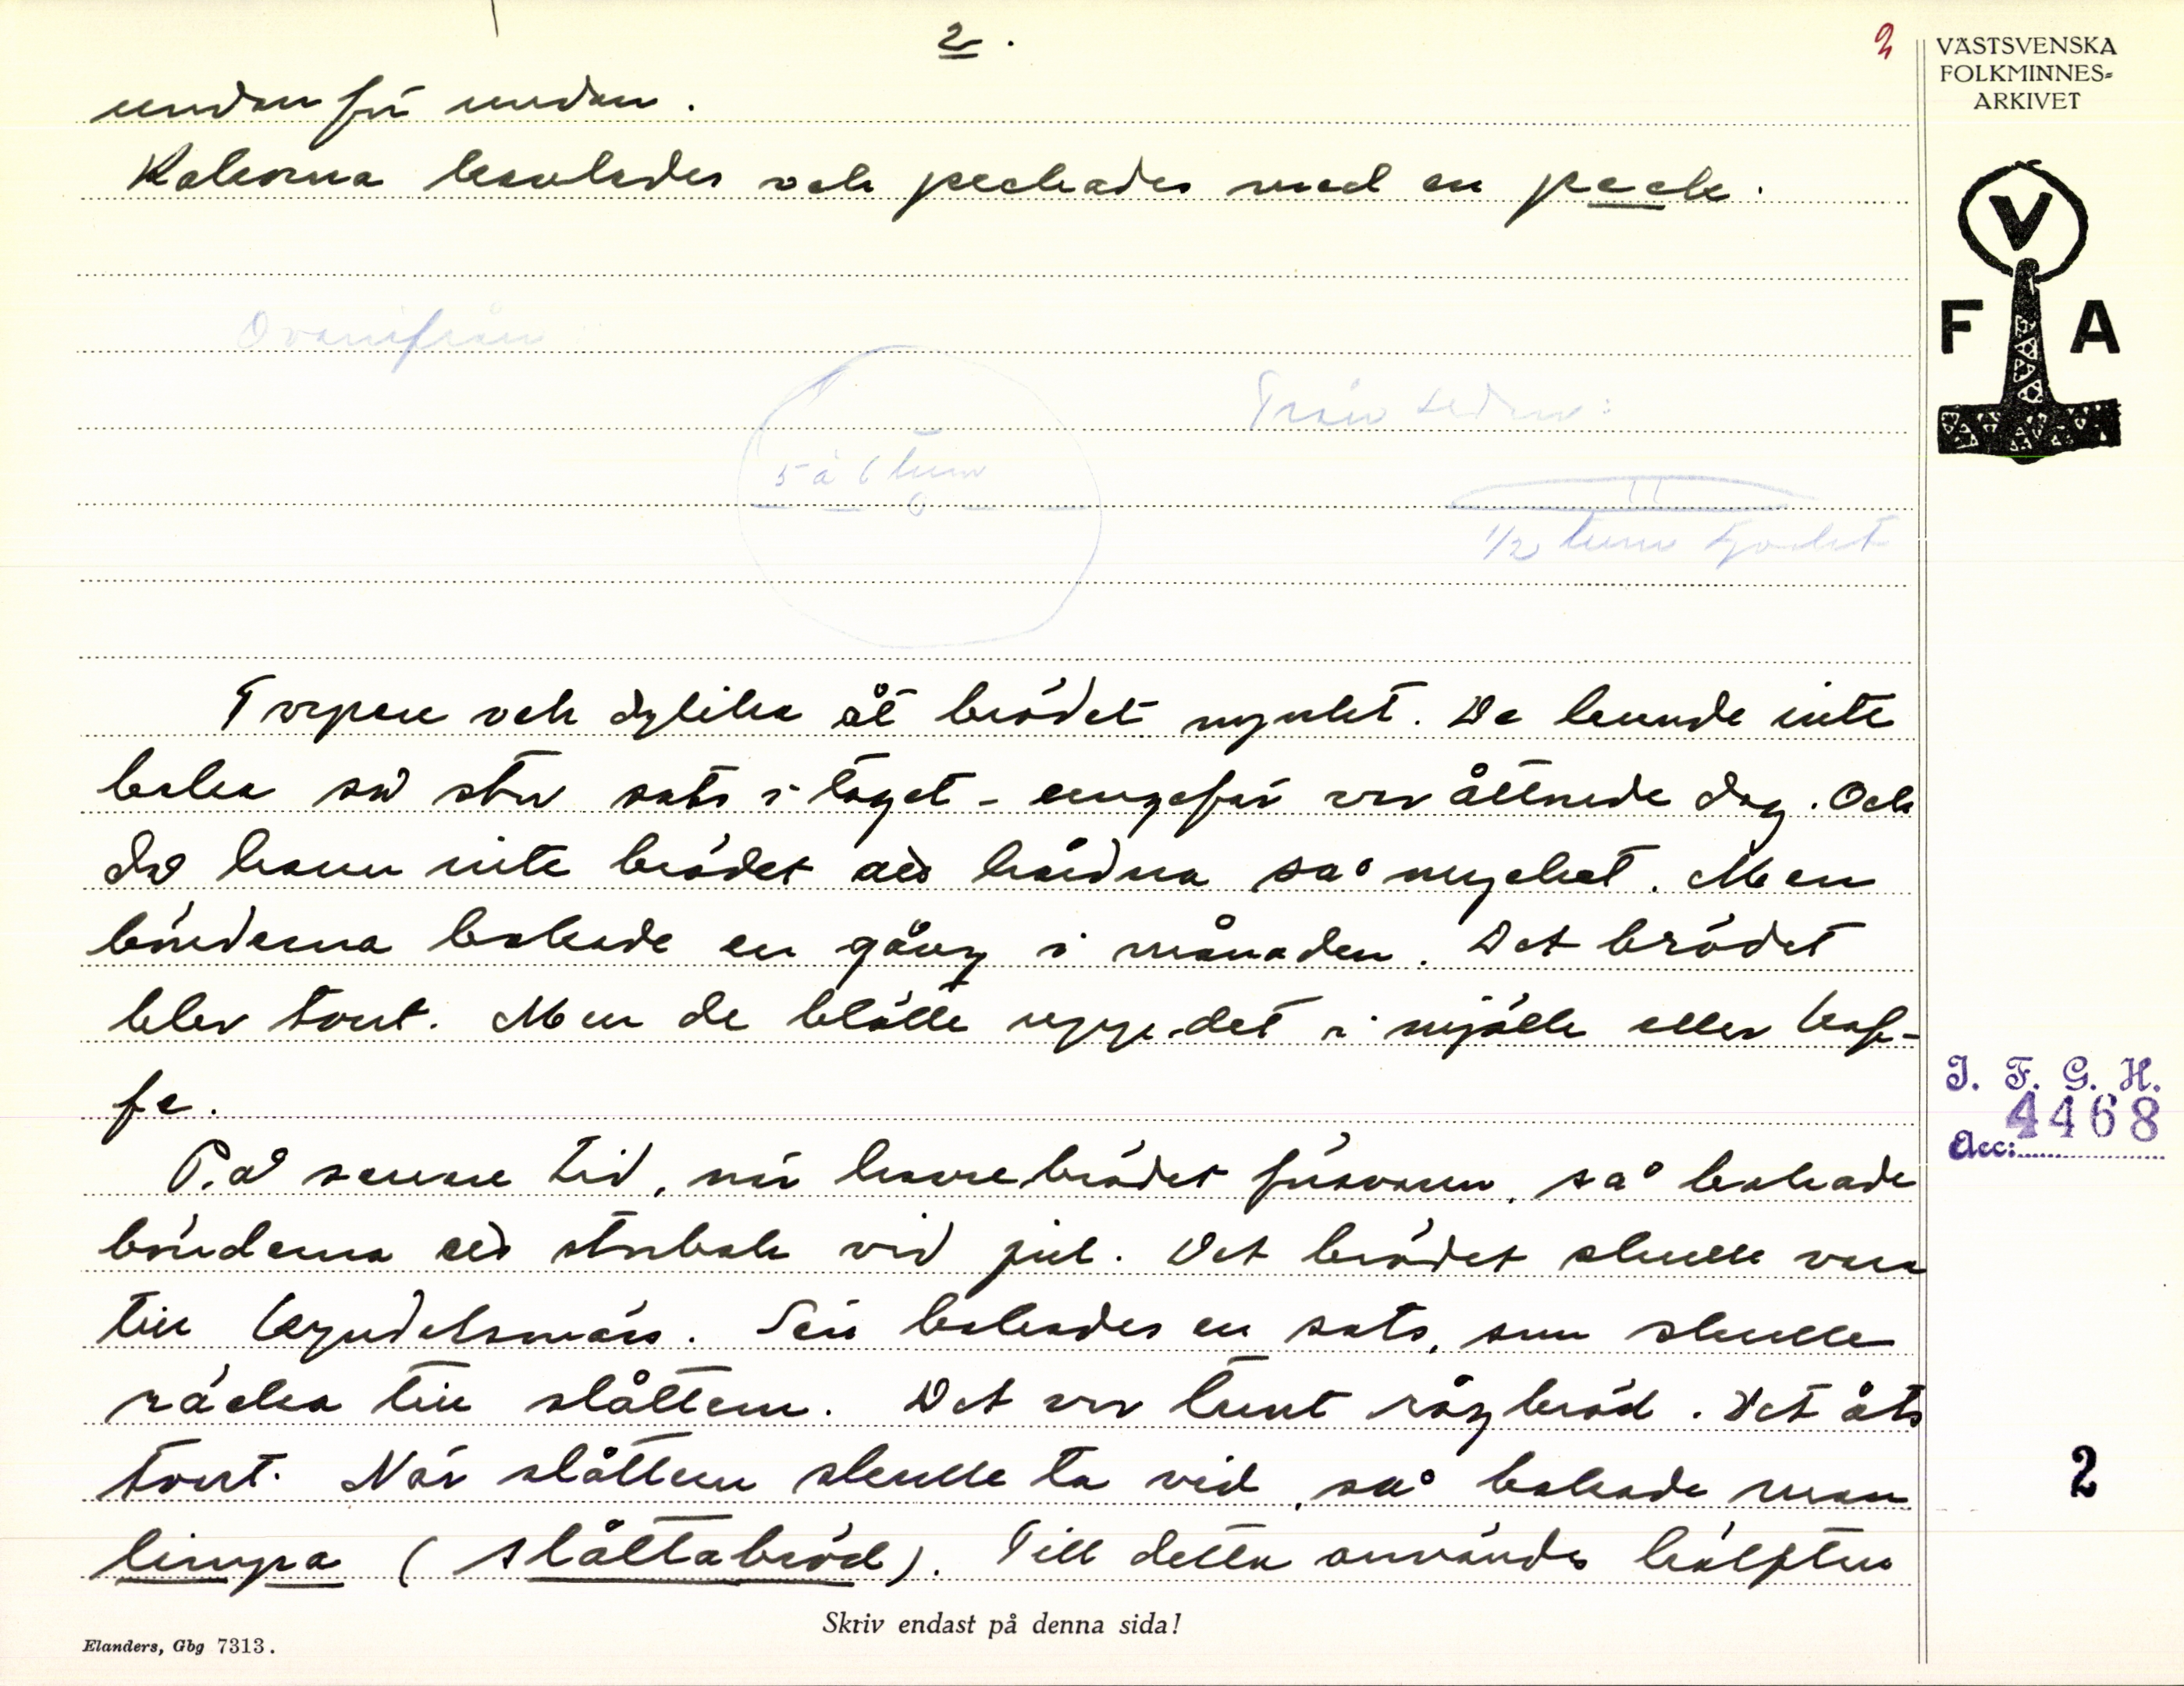 2.
2
VÄSTSVENSKA
FOLKMINNES=
ARKIVET
undan för undan.
Kakorna kavlades och pickades med en pick.
V
F A
Ovanifrån
Från sidan:
5 à 6 tum
1/2 tum tjockt
Torpare och dylika åt brödet mjukt. De kunde inte
baka så stor sats i taget - ungefär var åttonde dag. Och
då hann inte brödet att hårdna så mycket. Men
bönderna bakade en gång i månaden. Det brödet
blev torrt. Men de blötte upp det i mjölk eller kaf-
fe.
På senare tid, när havrebrödet försvann, så bakade
bönderna ett storbak vid jul. Det brödet skulle vara
till kyndelsmäss. Sen bakades en sats, som skulle
räcka till slåttern. Det var tunt rågbröd. Det åts
torrt. När slåttern skulle ta vid, så bakade man
limpa (slåttabröd). Till detta användes hälften
I. F. G. H.
4468
Acc:
2
Skriv endast på denna sida!
Elanders, Gbg 7313.